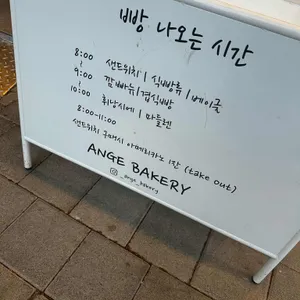 빵 나오는 시간
8:00 샌드위치 | 식빵류 | 베이글
9:00 깜빠뉴 | 겹식빵
10:00 휘낭시에 | 마들렌
8:00-11:00
샌드위치 구매시 아메리카노 1잔 (take out)
ANGE BAKERY
_ange_bakery